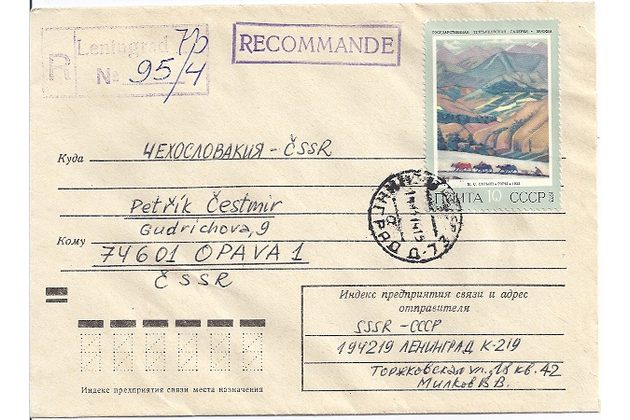 Leningrad 73
R
№ 95/4
RECOMMANDE
ГОСУДАРСТВЕННАЯ ТРЕТЬЯКОВСКАЯ ГАЛЕРЕЯ • МОСКВА
ПОЧТА 10 СССР
Куда ЧЕХОСЛОВАКИЯ - ČSSR
Petřík Čestmir
Gudrichova, 9
Кому 74601 OPAVA 1
ČSSR
ЛЕНИНГРАД Д-73
Индекс предприятия связи и адрес
отправителя
SSSR - СССР
194219 ЛЕНИНГРАД К-219
Торжковская ул., 18 кв. 42
Милков В.В.
Индекс предприятия связи места назначения